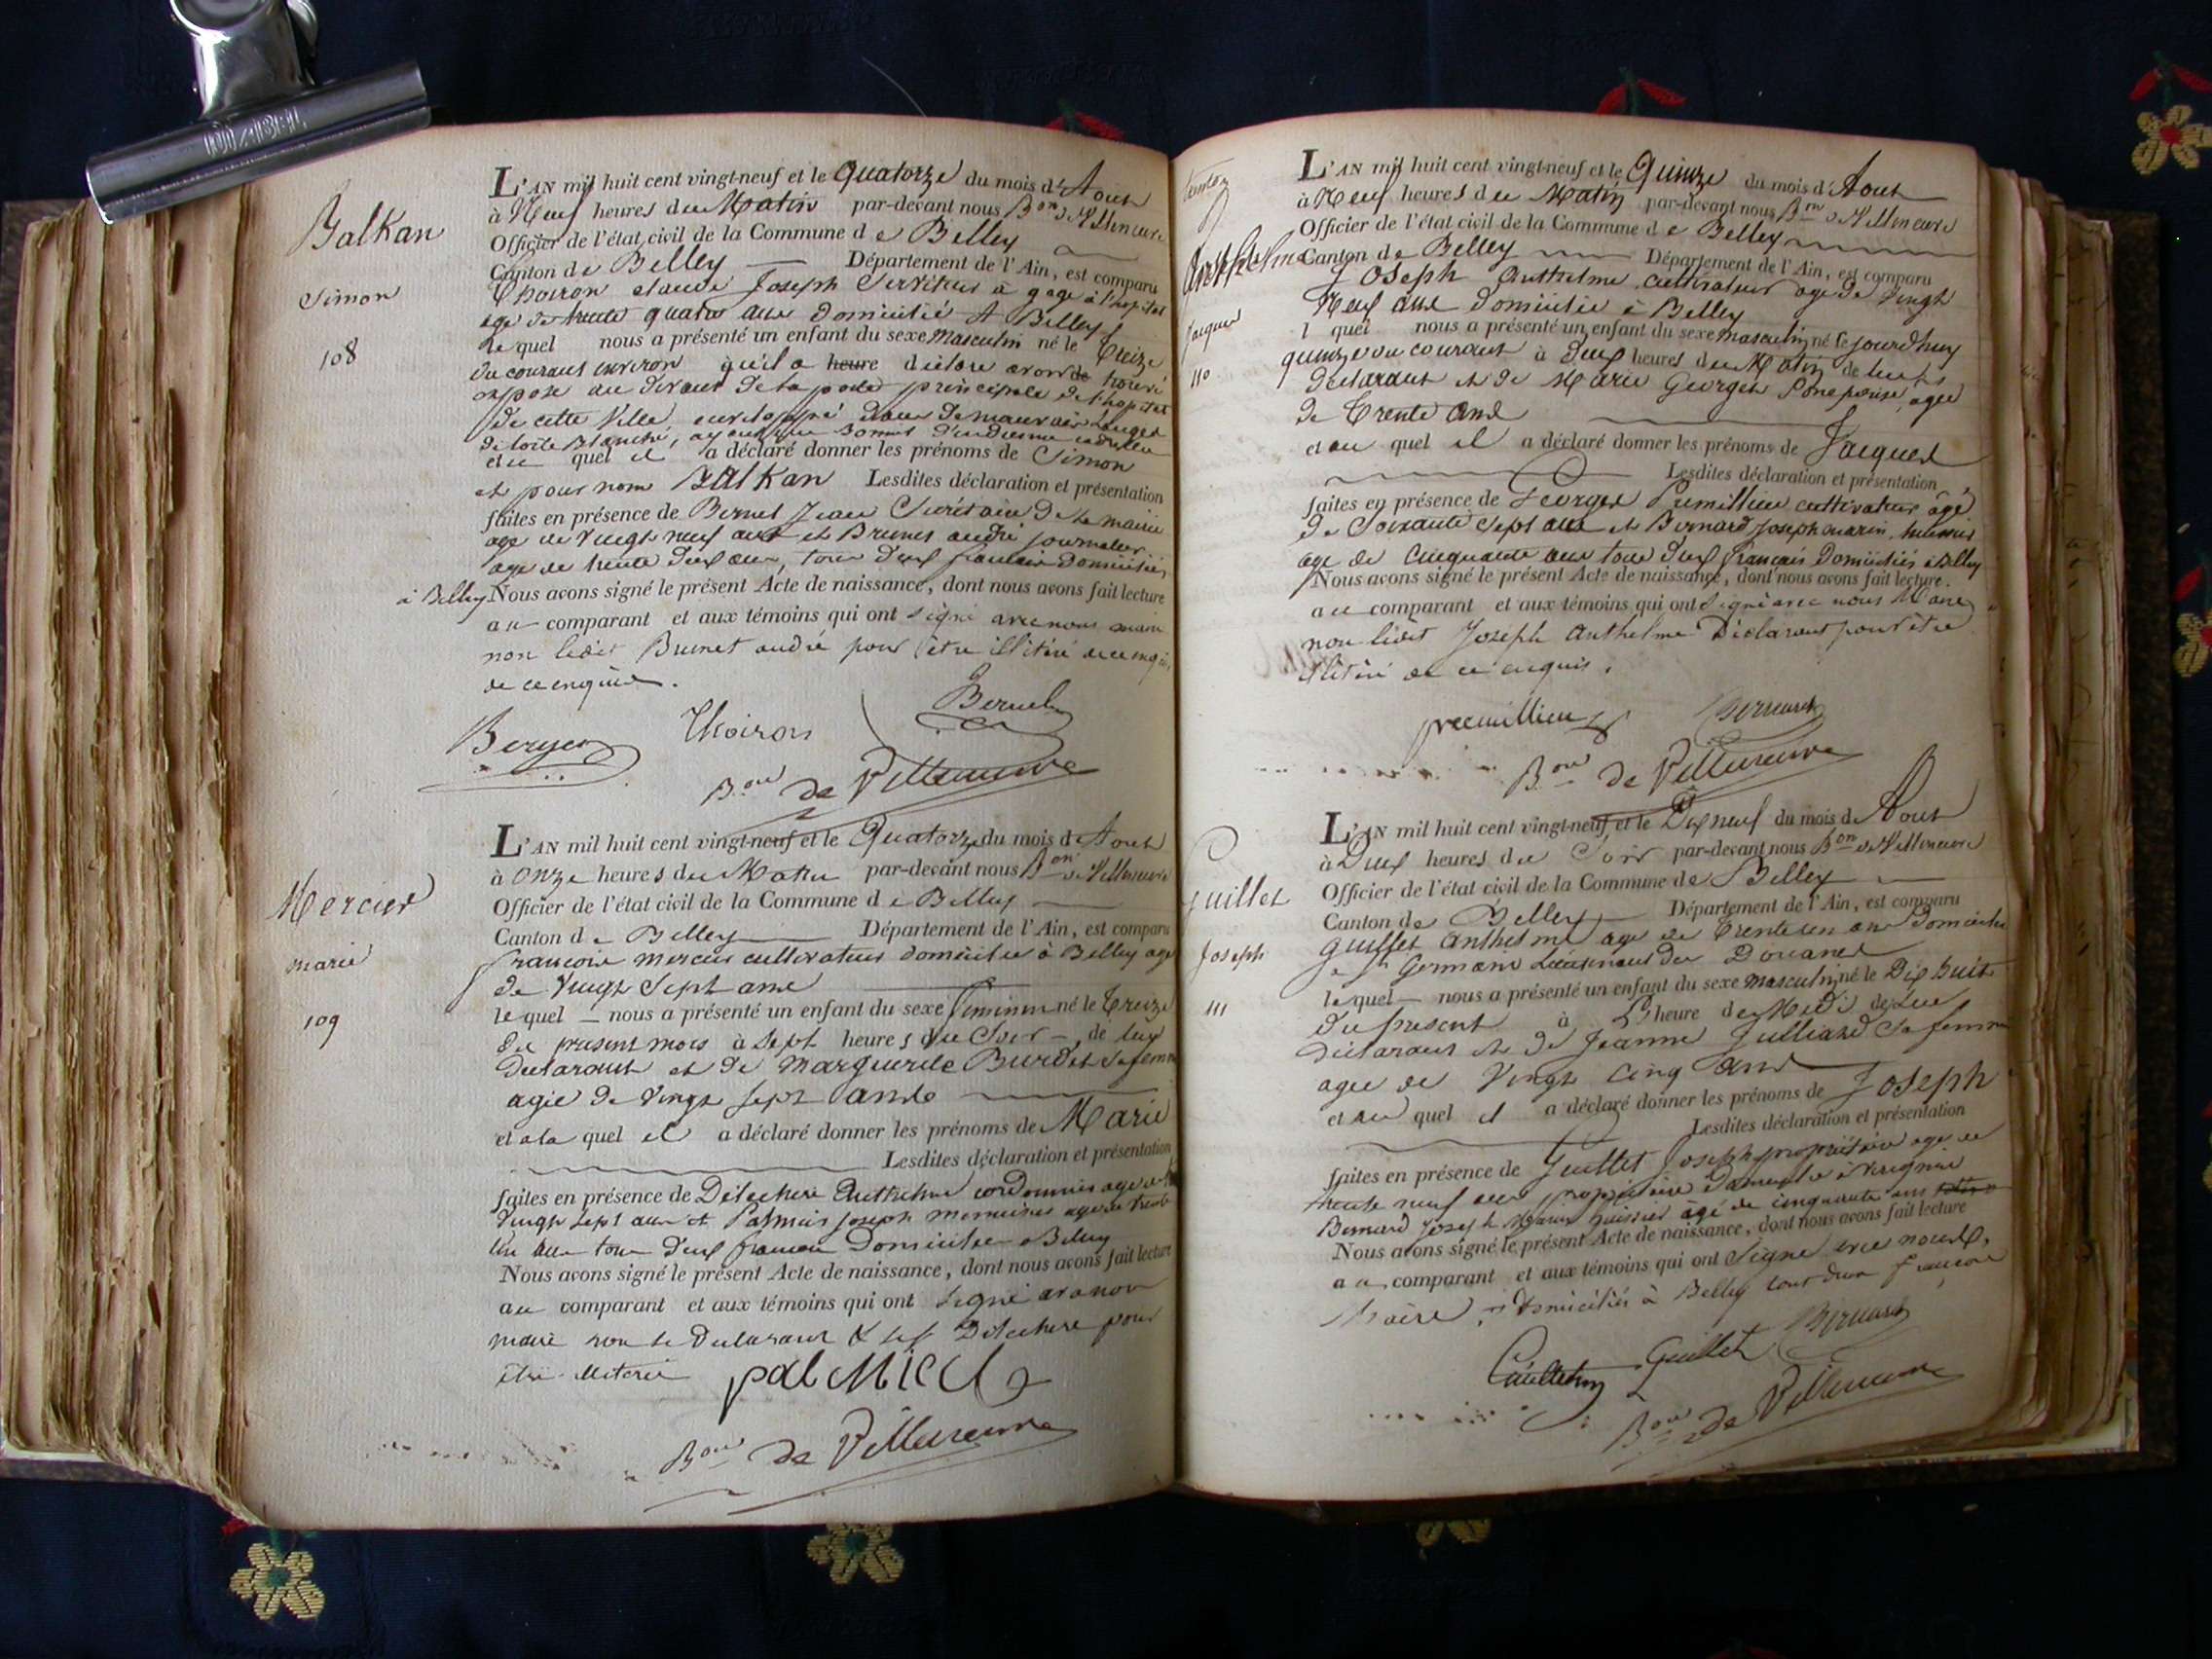 Balkan
Simon
108
L'AN mil huit cent vingt-neuf et le Quatorze du mois d'Aout
à Neuf heures du Matin par-devant nous Bon de Villeneuve
Officier de l'état civil de la Commune de Belley
Canton de Belley Département de l'Ain, est comparu
Thoiron claude Joseph Serviteur à gage à l'hopital
age de trente quatre ans domicilié A Belley
le quel nous a présenté un enfant du sexe Masculin né le treize
du courant environ qu'il a heure déclare avoir de trouvé
exposé au devant de la porte principale de l'hopital
de cette Ville, enveloppé dans de mauvais Langes
de toile Blanche, ayant un Bonnet d'indienne
et au quel il a déclaré donner les prénoms de Simon
et pour nom Balkan Lesdites déclaration et présentation
faites en présence de Bernet Jean Secrétaire de la mairie
age de Vingt neuf ans et Brunet andré journalier
age de trente Deux ans, tous Deux français Domiciliés
à Belley Nous avons signé le présent Acte de naissance, dont nous avons fait lecture
au comparant et aux témoins qui ont signé avec nous maire
non ledit Brunet andré pour être illitéré de ce enquis
de ce enquis.
Thoiron
Bon de Villeneuve
Mercier
marie
109
L'AN mil huit cent vingt-neuf et le Quatorze du mois d'Aout
à Onze heures du Matin par-devant nous Bon de Villeneuve
Officier de l'état civil de la Commune de Belley
Canton de Belley Département de l'Ain, est comparu
francois mercier cultivateur domicilié à Belley age
de Vingt Sept ans
le quel nous a présenté un enfant du sexe feminin né le treize
du present mois à Sept heures du Soir de lui
déclarant et de Marguerite Burdet sa femme
agée de Vingt sept ans
et a la quel il a déclaré donner les prénoms de Marie
Lesdites déclaration et présentation
faites en présence de Anthelme cordonnier age de
Vingt Sept ans et Palmier joseph menuisier age de trente
un ans tous Deux francais Domiciliés à Belley
Nous avons signé le présent Acte de naissance, dont nous avons fait lecture
au comparant et aux témoins qui ont signé avec nous
maire non le Declarant pour
être illiteré
palMier
Bon de Villeneuve
Anthelme
Jacques
110
L'AN mil huit cent vingt-neuf et le Quinze du mois d'Aout
à Neuf heures du Matin par-devant nous Bon de Villeneuve
Officier de l'état civil de la Commune de Belley
Canton de Belley Département de l'Ain, est comparu
Joseph Anthelme cultivateur age de Vingt
Neuf ans domicilié à Belley
l quel nous a présenté un enfant du sexe masculin né le jourdhuy
quinze du courant à Deux heures du Matin de lui
déclarant et de Marie Georget Son epouse, agee
de Trente ans
et au quel il a déclaré donner les prénoms de Jacques
Lesdites déclaration et présentation
faites en présence de Georges Premillieu cultivateur âgé
de Soixante Sept ans et Bernard Joseph marin huissier
age de Cinquante ans tous Deux français Domiciliés à Belley
Nous avons signé le présent Acte de naissance, dont nous avons fait lecture.
au comparant et aux témoins qui ont signé avec nous Maire
non ledit Joseph Anthelme Déclarant pour être
illitéré de ce enquis.
premillieu Bernard
Bon de Villeneuve
Guillet
Joseph
111
L'AN mil huit cent vingt-neuf et le Dix neuf du mois d'Aout
à Deux heures du Soir par-devant nous Bon de Villeneuve
Officier de l'état civil de la Commune de Belley
Canton de Belley Département de l'Ain, est comparu
Guillet Anthelme age de Trente un ans Domicilié
a St Germain Lieutenant des Douanes
le quel nous a présenté un enfant du sexe Masculin né le Dix huit
du present à heure de Midi de lui
déclarant et de Jeanne Julliard Sa femme
agee de Vingt Cinq ans
et au quel il a déclaré donner les prénoms de Joseph
Lesdites déclaration et présentation
faites en présence de Guillet Joseph propriétaire age de
trente neuf ans propriétaire Domicilié à
Bernard Joseph Marin huissier âgé de cinquante ans
Nous avons signé le présent Acte de naissance, dont nous avons fait lecture
au comparant et aux témoins qui ont Signé avec nous,
Maire, Domiciliés à Belley tous deux français
Guillet Bernard
Bon de Villeneuve